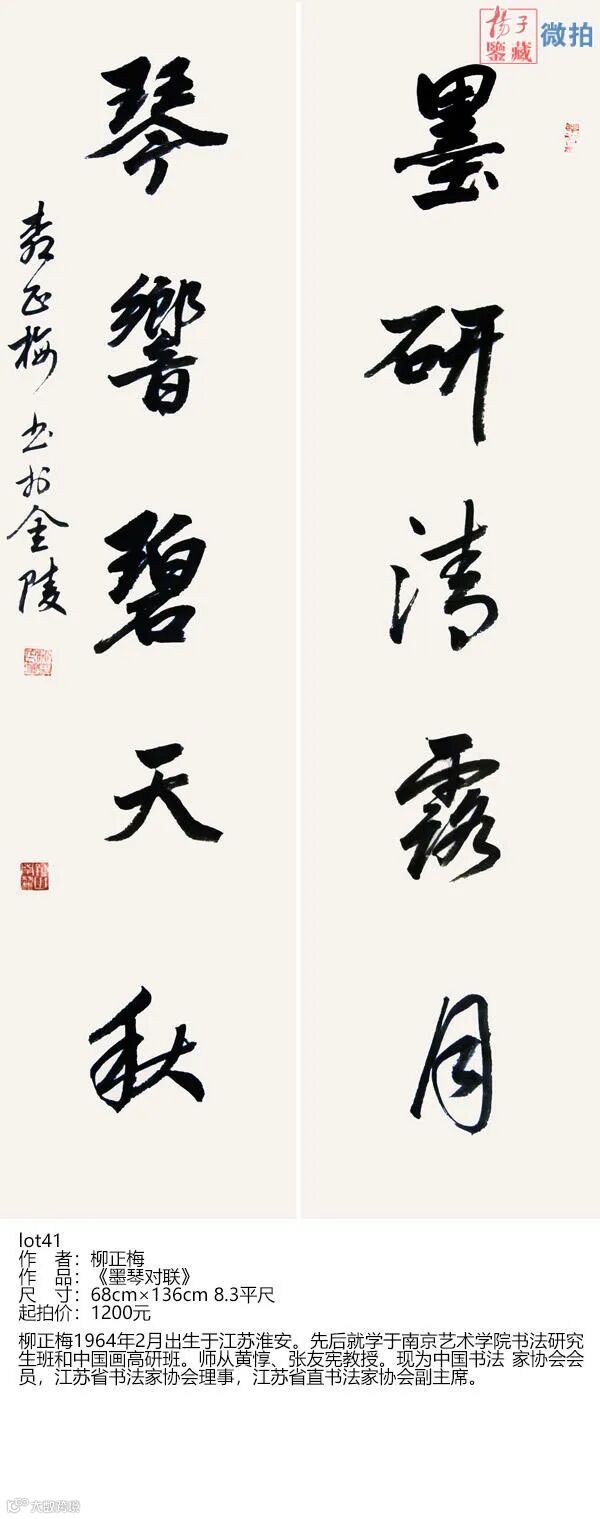 揚子
鑒藏
微拍
墨研清露月
琴響碧天秋
正梅书於金陵
lot41
作 者：柳正梅
作 品：《墨琴对联》
尺 寸：68cm×136cm 8.3平尺
起拍价：1200元
柳正梅1964年2月出生于江苏淮安。先后就学于南京艺术学院书法研究
生班和中国画高研班。师从黄惇、张友宪教授。现为中国书法 家协会会
员，江苏省书法家协会理事，江苏省直书法家协会副主席。